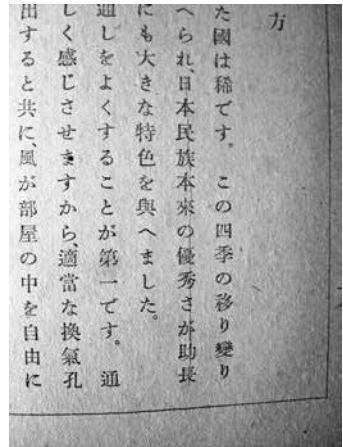 方
た國は稀です。この四季の移り變り
へられ、日本民族本來の優秀さが助長
にも大きな特色を與へました。
通しをよくすることが第一です。通
しく感じさせますから、適當な換氣孔
出すると共に、風が部屋の中を自由に